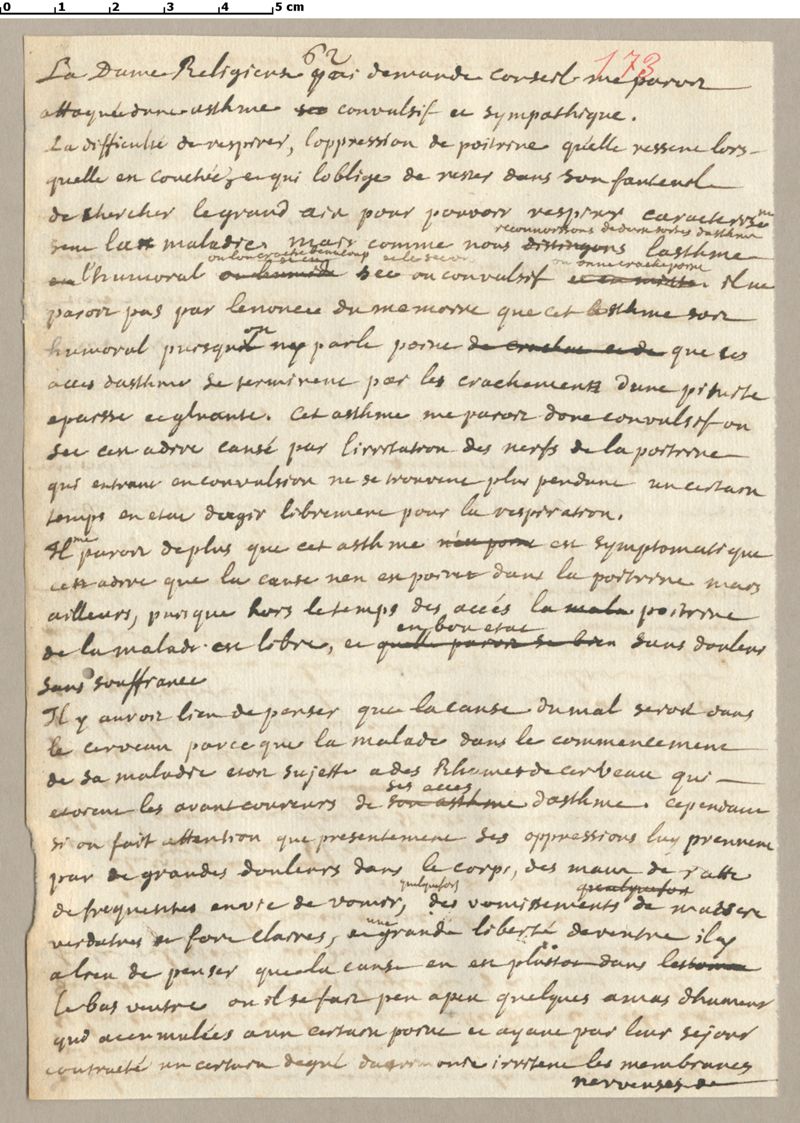 0 1 2 3 4 5 cm
62
173
La Dame Religieuse qui demande conseil me paroit
attaquée dune asthme convulsif et sympathique.
La difficulté de respirer, loppression de poitrine quelle ressent lors-
quelle en couchée, et qui loblige de rester dans son fauteuil
de chercher le grand air pour pouvoir respirer caracteri
reconnoissons de deux sortes dasthme
sent la maladie, mais comme nous distingons lasthme
ou lon crache beaucoup et le sec ou ou on ne crache point
lhumoral ou humide sec ou convulsif il ne
paroit pas par lenoncé du memoire que cet asthme soit
humoral puisquon ny parle point de crachat et de que ses
acces dasthme se terminent par les crachements dune pituite
epaisse et gluante. Cet asthme me paroit donc convulsif ou
sec cest adire causé par lirritation des nerfs de la poitrine
qui entrant en convulsion ne se trouvent plus pendant un certain
temps en etat dagir librement pour la respiration.
Il me paroit deplus que cet asthme nest point est symptomatique
cest adire que la cause nen est point dans la poitrine mais
ailleurs, puisque hors le temps des accés la mala poitrine
en bon etat
de la malade est libre, et quelle paroit se bien sans douleur
sans souffrance
Il y auroit lieu de penser que la cause du mal seroit dans
le cerveau parce que la malade dans le commencement
de sa maladie etoit sujette a des Rhumes de cerveau qui
ses acces
etoient les avant coureurs de son asthme dasthme. cependant
si on fait attention que presentement ses oppressions luy prennent
par de grandes douleurs dans le corps, des maux de ratte
quelquefois quelquefois
de frequentes envie de vomir, des vomissements de matiere
une
verdatres et fort claires, et grande liberté de ventre il y
a lieu de penser que la cause en est plustost dans lestomac
le bas ventre ou il se fait peu a peu quelques amas dhumeur
qui accumulées a un certain point et ayant par leur sejour
contracté un certain degré dacrimonie irritent les membranes
nerveuses de